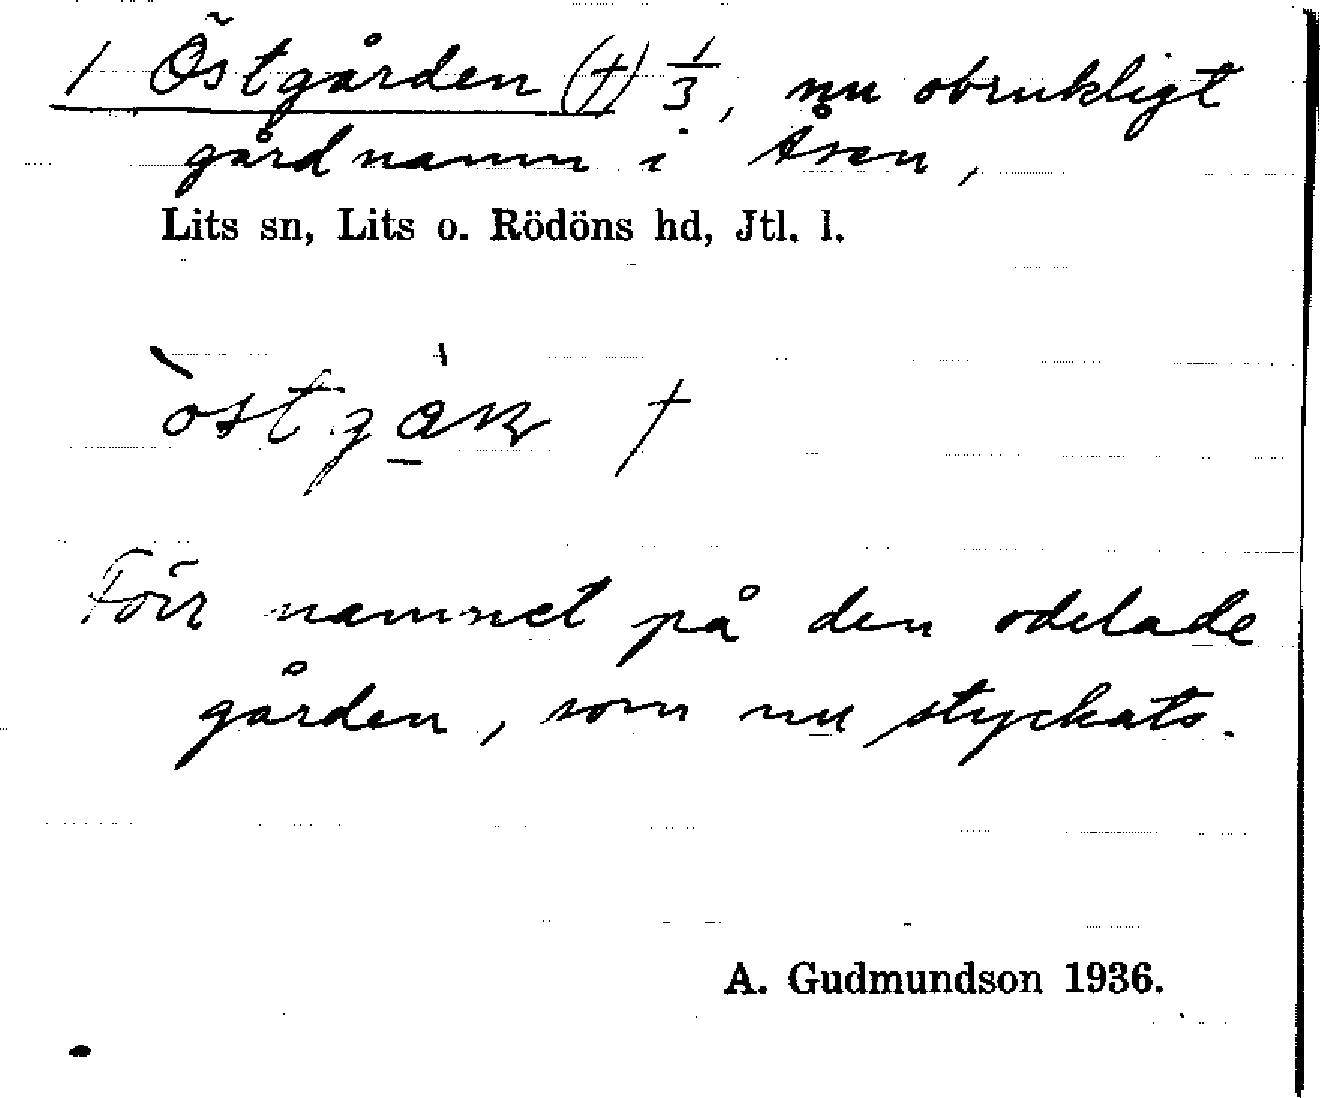 1 Östgården (†) 1/3, nu obrukligt
gårdnamn i Åsen,
Lits sn, Lits o. Rödöns hd, Jtl. l.
†
Förr namnet på den odelade
gården, som nu styckats.
A. Gudmundson 1936.